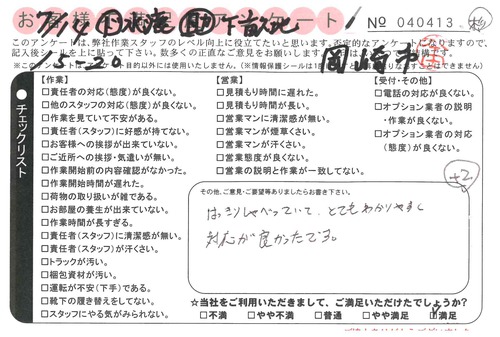 お客様アンケート
№ 040413
このアンケートは、弊社作業スタッフのレベル向上に役立てたいと思います。否定的なアンケートになりますので、
記入後シールに貼って下さい。
15-20
岡崎市
チェックリスト
【作業】
□責任者の対応(態度)が良くない。
□他のスタッフの対応(態度)が良くない。
□作業を見ていて不安がある。
□責任者(スタッフ)に好感が持てない。
□お客様への挨拶が出来ていない。
□ご近所への挨拶・気遣いが無い。
□作業開始前の内容確認がなかった。
□作業開始時間が遅れた。
□荷物の取り扱いが雑である。
□お部屋の養生が出来ていない。
□作業時間が長すぎる。
□責任者(スタッフ)に清潔感が無い。
□責任者(スタッフ)が汗くさい。
□トラックが汚い。
□梱包資材が汚い。
□運転が不安(下手)である。
□靴下の履き替えをしてない。
□スタッフにやる気がみられない。
【営業】
□見積もり時間に遅れた。
□見積もり時間が長い。
□営業マンに清潔感が無い。
□営業マンが煙草くさい。
□営業マンが汗くさい。
□営業態度が良くない。
□営業の説明と作業が一致してない。
【受付・その他】
□電話の対応が良くない。
□オプション業者の説明
・作業が良くない。
□オプション業者の対応
(態度)が良くない。
+2
その他、ご意見・ご要望等ありましたらお書き下さい。
はっきりしゃべっていて、とてもわかりやすく
対応が良かったです。
☆当社をご利用いただきまして、ご満足いただけたでしょうか?
□不満 □やや不満 □普通 □やや満足 □満足